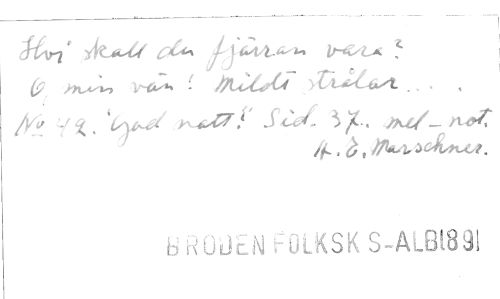 Hvi skall du fjärran vara?
O, min vän! Mildt strålar....
No 42. "God natt!" Sid. 37. mel-not.
A. E. Marschner.
BRODEN FOLKSK S-ALB1891